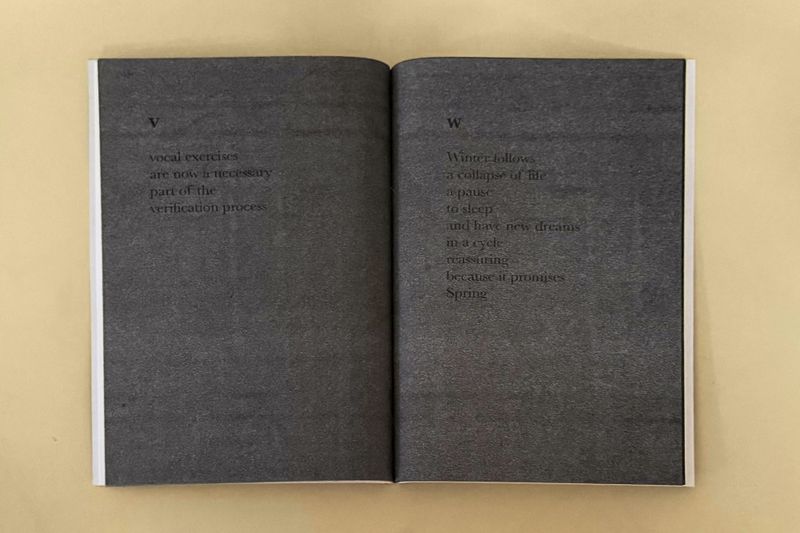 v
vocal exercises
are now a necessary
part of the
verification process
w
Winter follows
a collapse of life
a pause
to sleep
and have new dreams
in a cycle
reassuring
because it promises
Spring